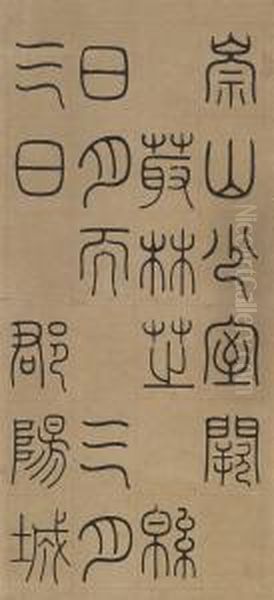 崇山少室闕
林芝 縣
日月而 三月
三日 郡陽城